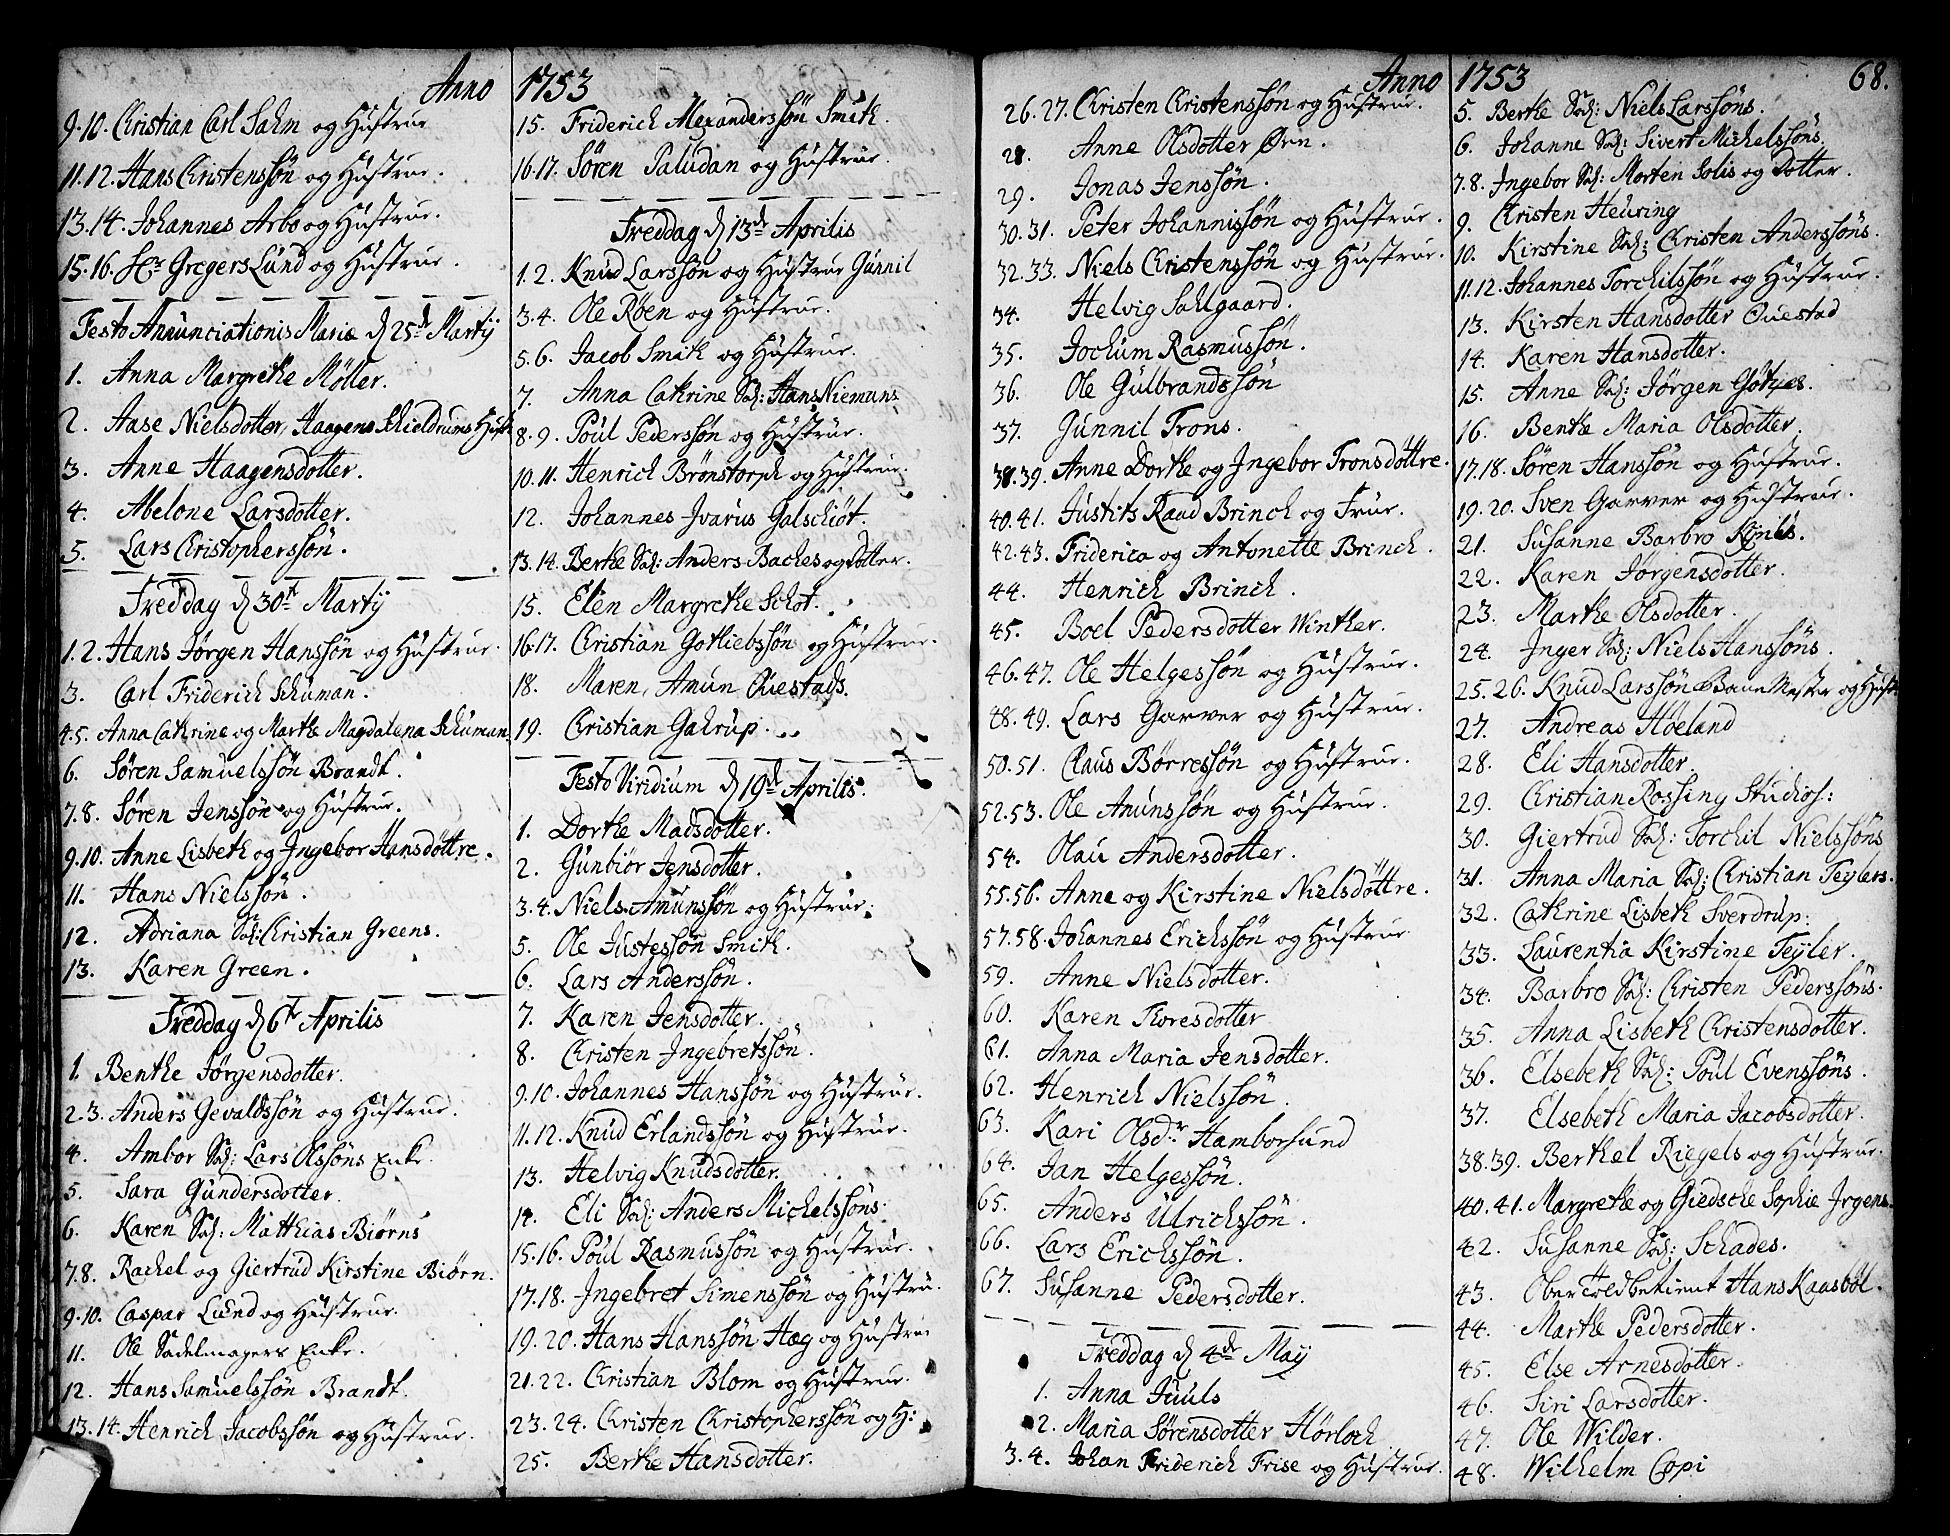 Anno 1753
9.10. Christian Carl Sahm og Hustrue
11.12. Hans Christenssön og Hustrue.
13.14. Johannes Arbo og Hustrue.
15.16. Hr Gregers Lund og Hustrue.
Festo Annunciationis Mariæ d 25de Martij
1. Anna Margrethe Möller.
2. Aase Nielsdotter, Haagens Schieldrums Hust
3. Anne Haagensdotter.
4. Abelone Larsdotter.
5. Lars Christopherssön.
Freddag d 30te Martij
1.2. Hans Jörgen Hanssön og Hustrue.
3. Carl Friderich Schuman.
4.5. Anna Cathrine og Marthe Magdalena Schuman.
6. Sören Samuelssön Brandt.
7.8. Sören Jenssön og Hustrue.
9.10. Anne Lisbeth og Ingebor Hansdöttre.
11. Hans Nielssön.
12. Adriana Sal: Christian Greens.
13. Karen Green.
Freddag d 6te Aprilis
1. Benthe Jörgensdotter.
2.3. Anders Gevaldssön og Hustrue.
4. Ambor Sal: Lars Olssöns Enke.
5. Sara Gundersdotter.
6. Karen Sal: Matthias Biörns
7.8. Rachel og Giertrud Kirstine Biörn.
9.10. Caspar Lund og Hustrue.
11. Ole Sadelmagers Enke.
12. Hans Samuelssön Brandt.
13.14. Henrich Jacobssön og Hustrue.
15. Friderich Alexanderssön Smith.
16.17. Sören Paludan og Hustrue.
Freddag d 13de Aprilis
1.2. Knud Larssön og Hustrue Gunnil
3.4. Ole Röen og Hustrue.
5.6. Jacob Smith og Hustrue.
7. Anna Cathrine Sal: Hans Niemans
8.9. Poul Pederssön og Hustrue.
10.11. Henrich Brönstorph og Hustrue.
12. Johannes Ivarus Galschiöt.
13.14. Berthe Sal: Anders Baches og Dotter.
15. Elen Margrethe Schot.
16.17. Christian Gotliebssön og Hustrue.
18. Maren Amun Questads.
19. Christian Gahrup.
Festo Viridium d 19de Aprilis.
1. Dorthe Madsdotter.
2. Gunbiör Jensdotter.
3.4. Niels Amunssön og Hustrue.
5. Ole Justessön Smith.
6. Lars Anderssön.
7. Karen Jensdotter.
8. Christen Ingebretssön.
9.10. Johannes Hanssön og Hustrue.
11.12. Knud Erlandssön og Hustrue.
13. Helvig Knudsdotter.
14. Eli Sal: Anders Michelssöns.
15.16. Poul Rasmussön og Hustrue.
17.18. Ingebret Simenssön og Hustru.
19.20. Hans Hanssön Hæg og Hustrue
21.22. Christian Blom og Hustrue.
23.24. Christen Christopherssön og H:
25. Berthe Hansdotter.
Anno 1753 68.
26.27. Christen Christenssön og Hustrue.
28. Anne Olsdotter Örn.
29. Jonas Jenssön.
30.31. Peter Johannissön og Hustrue.
32.33. Niels Christenssön og Hustrue.
34. Helvig Sahlgaard.
35. Jochum Rasmussön.
36. Ole Gulbrandssön
37. Gunnil Trons.
38.39. Anne Dorthe og Ingebor Tronsdöttre.
40.41. Justits Raad Brinch og Frue.
42.43. Friderica og Antonette Brinch.
44. Henrich Brinch.
45. Boel Pedersdotter Winther.
46.47. Ole Helgessön og Hustrue.
48.49. Lars Garver og Hustrue.
50.51. Claus Börressön og Hustrue.
52.53. Ole Amunssön og Hustrue.
54. Olau Andersdotter.
55.56. Anne og Kirstine Nielsdöttre.
57.58. Johannes Erichssön og Hustrue
59. Anne Nielsdotter.
60. Karen Thoresdotter
61. Anna Maria Jensdotter.
62. Henrich Nielssön.
63. Kari Olsdr Hamborsund
64. Jan Helgessön.
65. Anders Ulrichssön.
66. Lars Erichssön.
67. Susanne Pedersdotter.
Freddag d 4de Maij
1. Anna Juuls
2. Maria Sörensdotter Hörloch
3.4. Johan Friderich Frise og Hustrue.
5. Berthe Sal: Niels Larssöns.
6. Johanne Sal: Sivert Michelssöns.
7.8. Ingebor Sal: Morten Solis og Dotter.
9. Christen Heuring
10. Kirstine Sal: Christen Anderssöns.
11.12. Johannes Torchilssön og Hustrue.
13. Kirsten Hansdotter Questad
14. Karen Hansdotter.
15. Anne Sal: Jörgen Götges.
16. Benthe Maria Olsdotter.
17.18. Sören Hanssön og Hustrue.
19.20. Sven Garver og Hustrue.
21. Susanne Barbro
22. Karen Jörgensdotter.
23. Marthe Olsdotter.
24. Inger Sal: Niels Hanssöns.
25.26. Knud Larssön Bane Mester og Hust
27. Andreas Höeland
28. Eli Hansdotter.
29. Christian Rossing Studios:
30. Giertrud Sal: Torchil Nielssöns
31. Anna Maria Sal: Christian Teylers.
32. Cathrine Lisbeth Sverdrup.
33. Laurentia Kirstine Teyler.
34. Barbro Sal: Christen Pederssöns.
35. Anna Lisbeth Christensdotter.
36. Elsebeth Sal: Poul Evenssöns.
37. Elsebeth Maria Jacobsdotter.
38.39. Berthel Riegels og Hustrue.
40.41. Margrethe og Giedsche Sophie Irgens.
42. Susanne Sal: Schades.
43. Ober Toldbetient Hans Kaasböl.
44. Marthe Pedersdotter.
45. Else Arnesdotter.
46. Siri Larsdotter.
47. Ole Wilder.
48. Wilhelm Copi